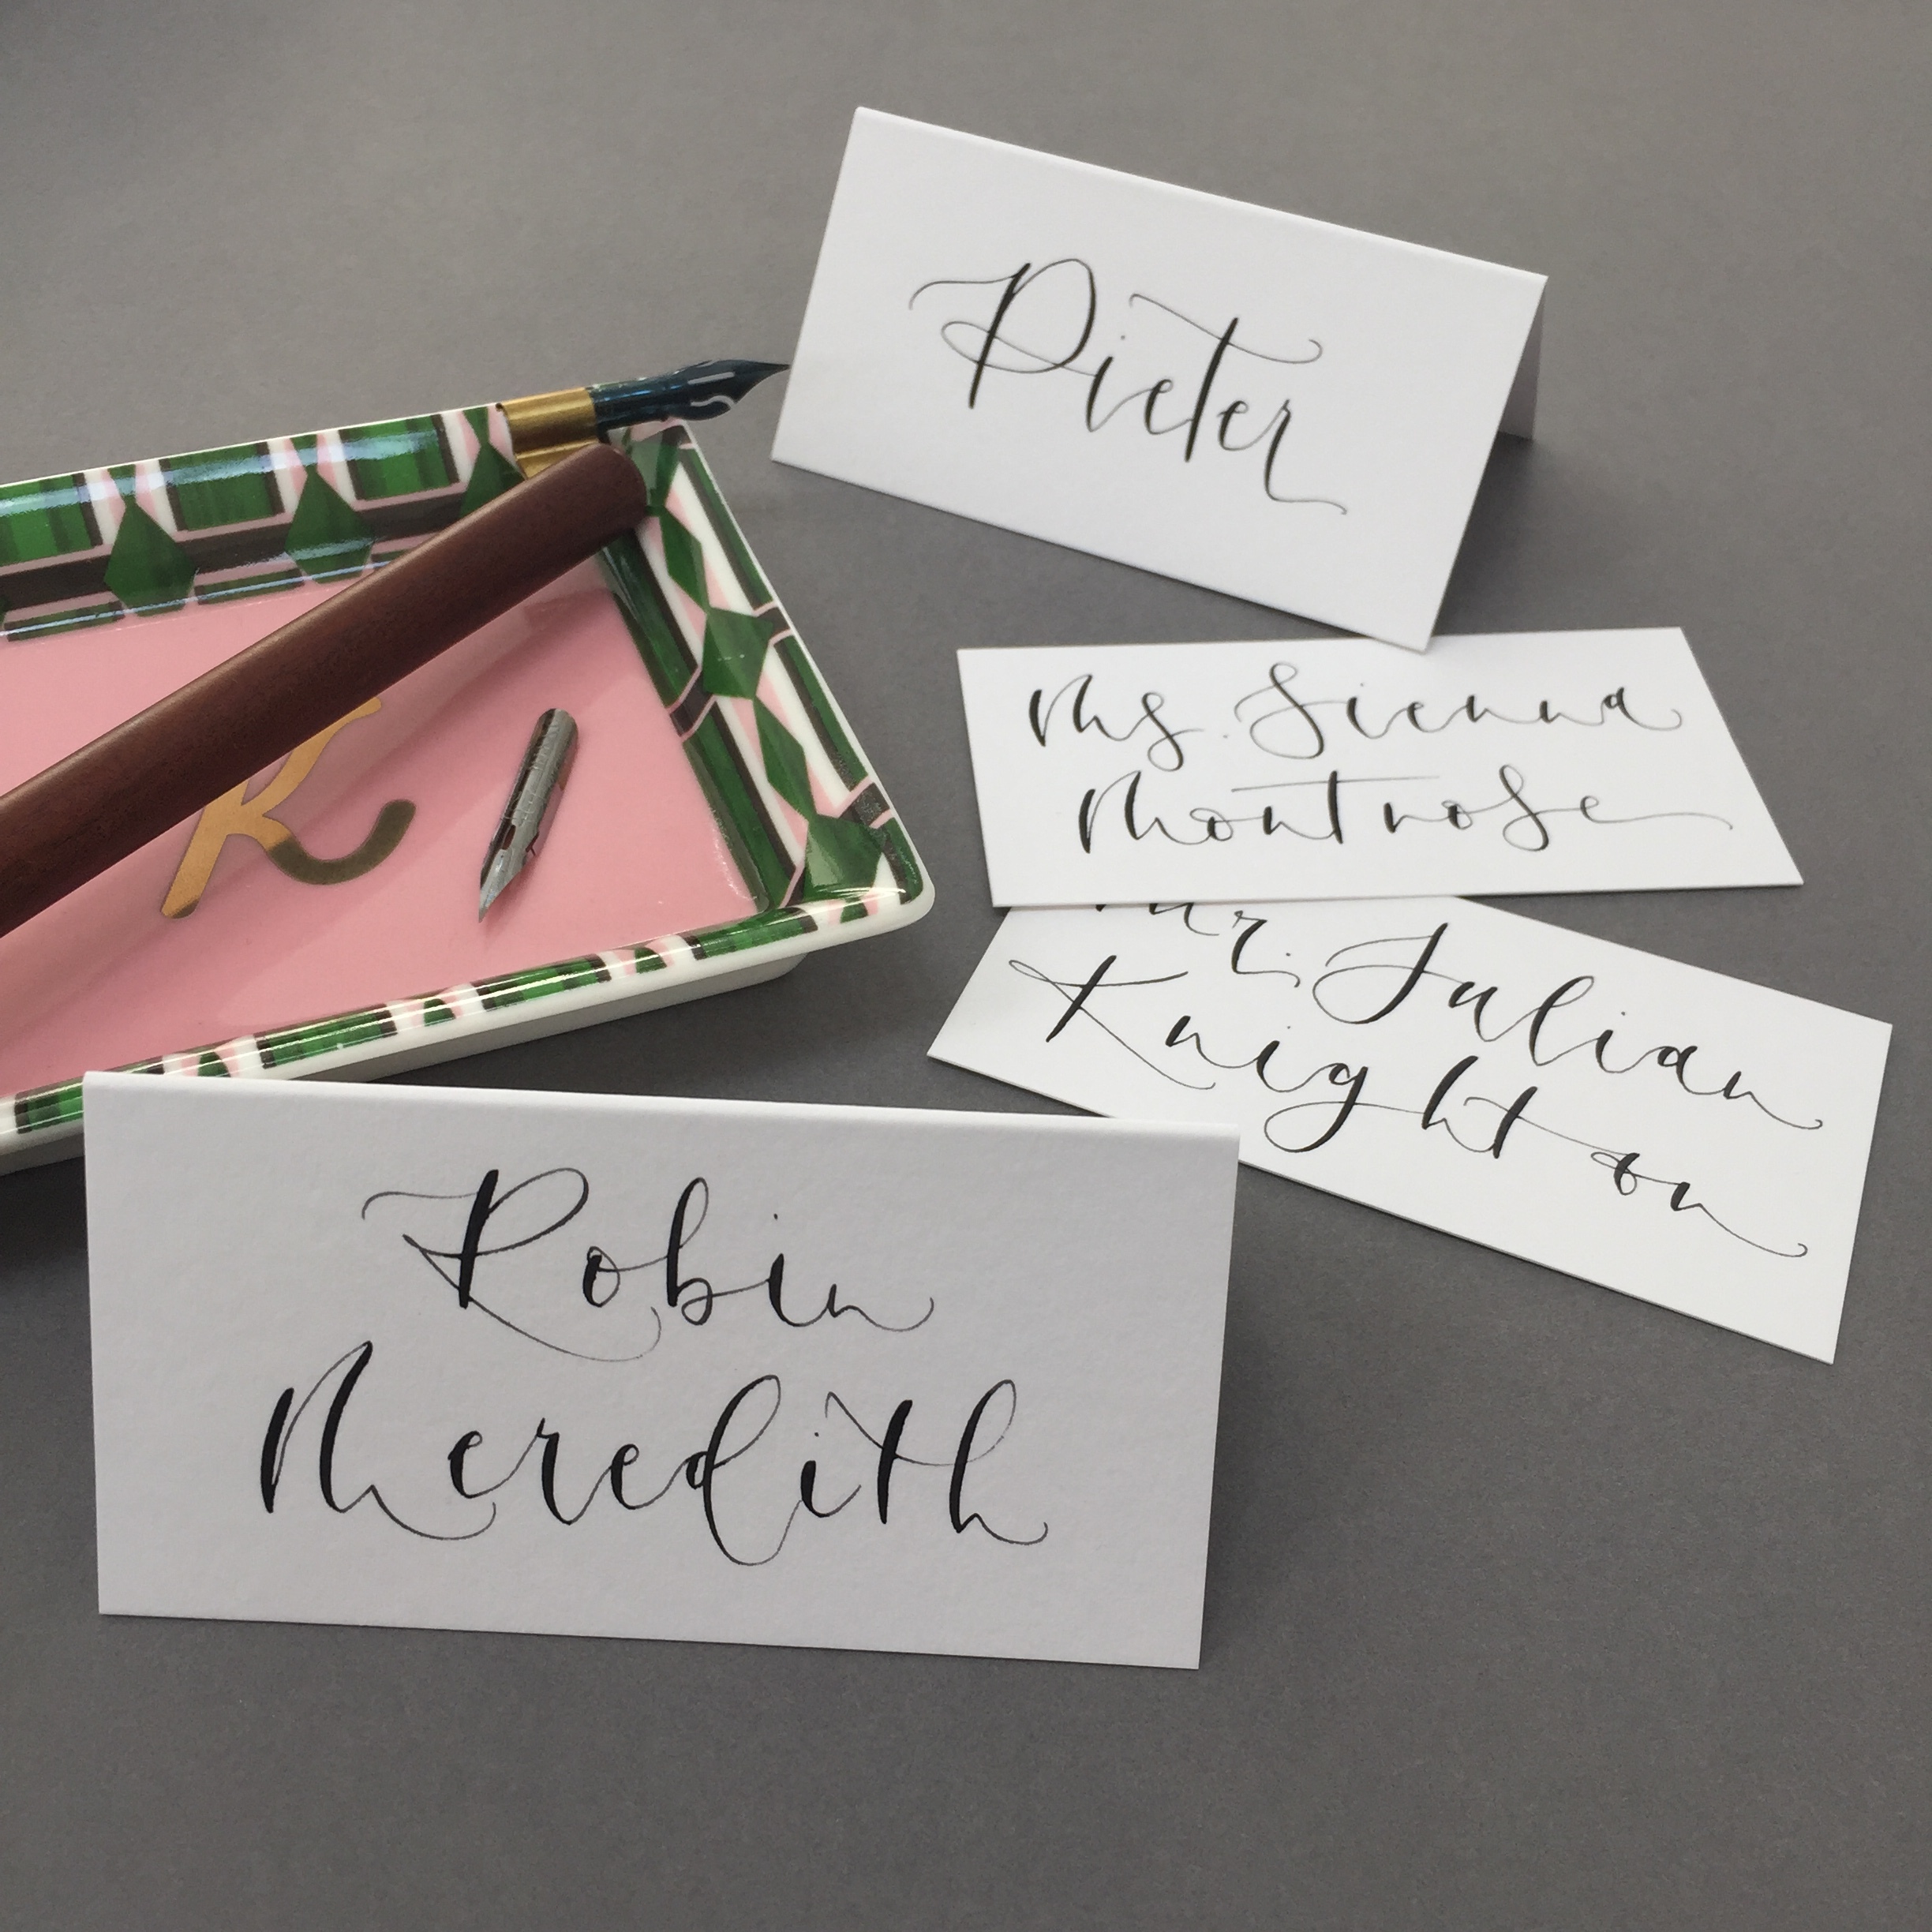 Pieter
Ms. Sienna
Montrose
Mr. Julian
Knighton
K
Robin
Meredith